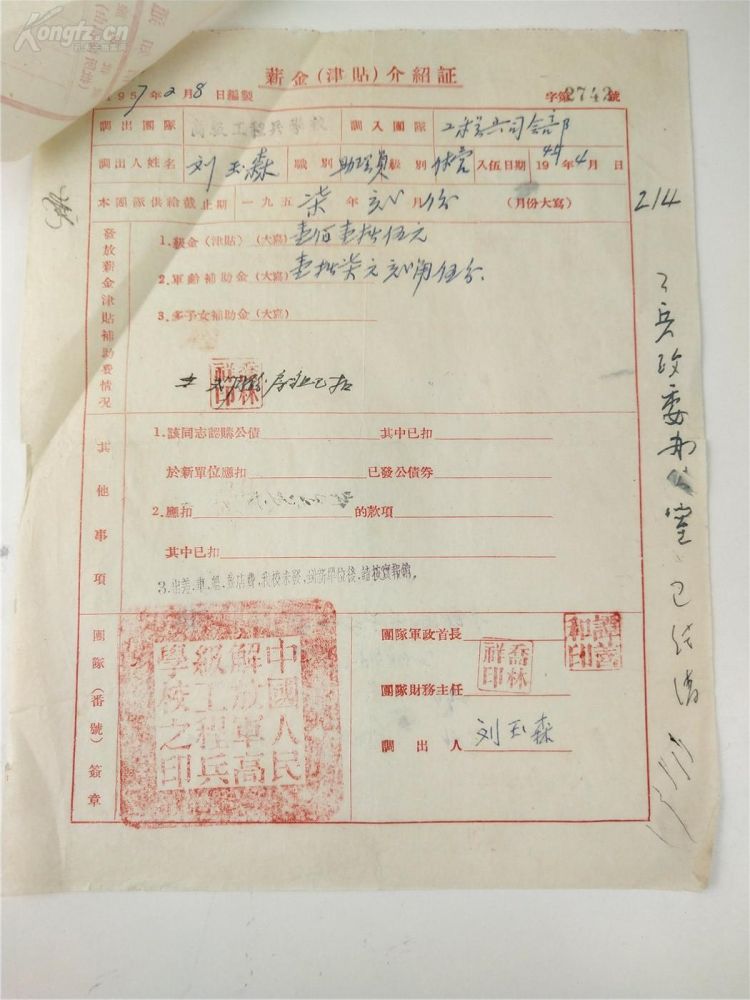 Kongfz.cn
薪金(津貼)介紹証
1957年2月8日編製 字第2742號
調出團隊 高級工程兵學校 調入團隊 工程兵司令部
調出人姓名 刘玉森 職別 助理員 級別 入伍日期 1944年4月 日
本團隊供給截止期 一九五柒年 月份 (月份大寫)
214
發放薪金津貼補助費情况
1.薪金(津貼)(大寫)壹佰壹拾伍元
2.軍齡補助金(大寫)壹拾柒元贰角伍分
3.多子女補助金(大寫)
喬林祥印
其他事項
1.該同志認購公債 其中已扣
於新單位應扣 已發公債券
2.應扣 的款項
其中已扣
3.出差.車.船.旅店費.我校未發.到新單位後.請核實報銷.
團隊(番號)簽章
中國人民解放軍高級工程兵學校之印
團隊軍政首長 譚善和印
團隊財務主任 喬林祥印
調出人 刘玉森
工兵政委办公室 已结清